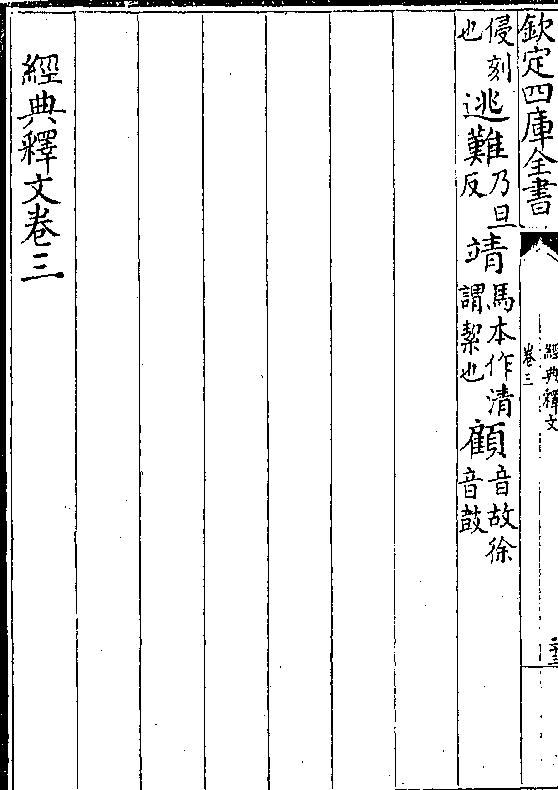 欽定四庫全書
經典釋文
卷三
侵刻也逃難乃旦反靖馬本作清謂絜也顧音故徐音鼓
經典釋文卷三